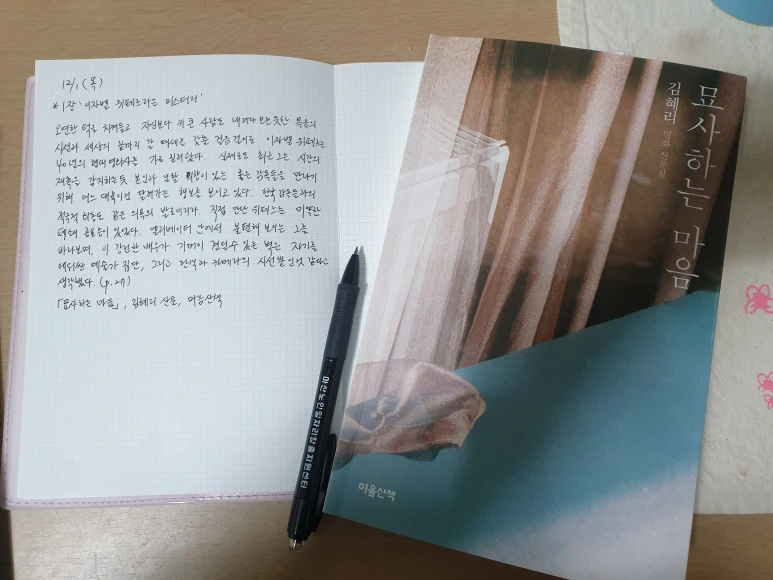 12/1 (목)
* 1장 '이자벨 위페르라는 미스터리'
오연한 턱을 치켜들고 자신보다 키 큰 사람도 내려다 보는 듯한 특유의
시선과 세상의 끝까지 갈 태세를 갖춘 걸음걸이로 이자벨 위페르는
40년의 현대영화사를 가로질러왔다. 실제로도 최근 그는 시간의
재촉을 감지하는 듯 본인과 모험 의향이 있는 좋은 감독들을 만나기
위해 어느 대륙이건 달려가는 행보를 보이고 있다. 한국 감독들과의
적극적 회동도 같은 의욕의 발로이리라. 직접 만난 위페르는 이렇다
할 공통점이 있었다. 엘리베이터 안에서 불편해 보이는 그를
바라보며, 이 강건한 배우가 기꺼이 견딜 수 있는 벽은 자기를
에워싼 예술가 집단, 그리고 관객과 카메라의 시선뿐인 것 같다고
생각했다. (p.27)
「묘사하는 마음」, 김혜리 산문, 마음산책
묘사하는 마음
김혜리 영화 산문집
마음산책
마산노인일자리창출지원센터